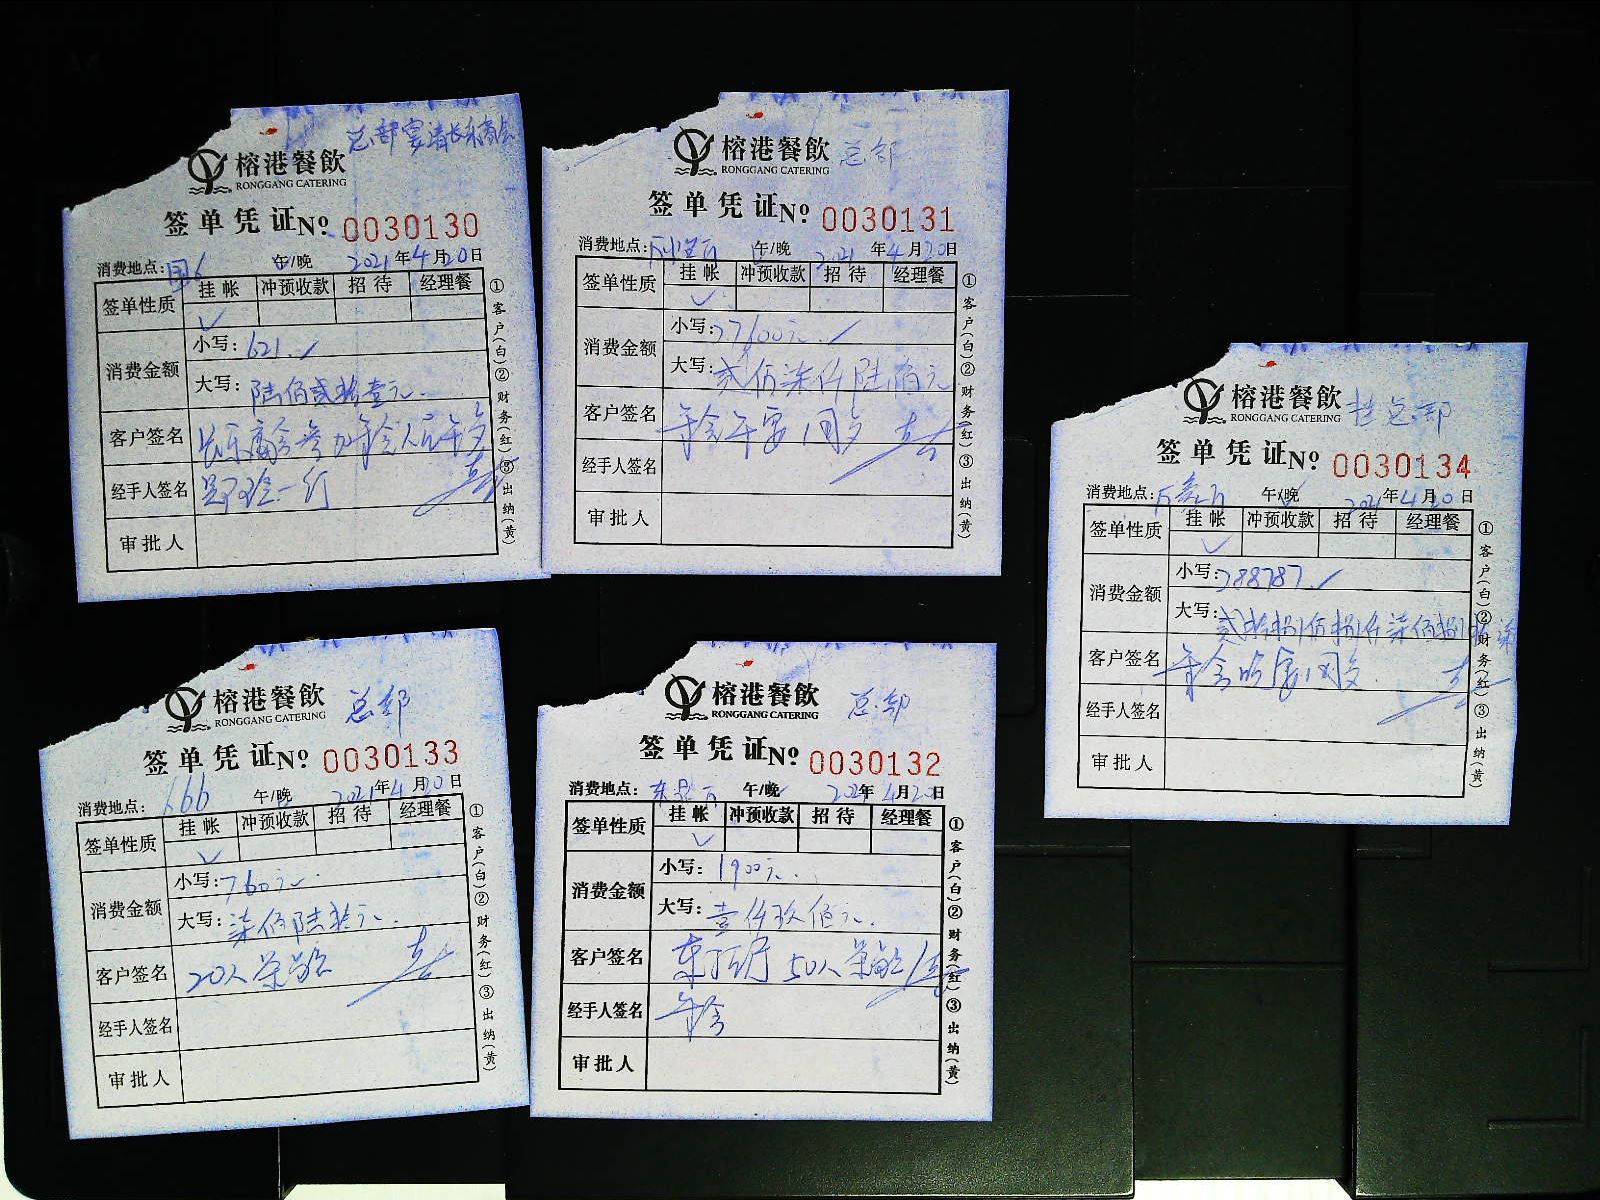 总部宴请长乐商会
榕港餐飲
RONGGANG CATERING
签单凭证№ 0030130
消费地点: 国6 午/晚 2021年4月20日
签单性质 挂帐 冲预收款 招待 经理餐
✓
消费金额 小写: 621.
大写: 陆佰贰拾壹元.
客户签名 长乐商会参加年会人员午餐
经手人签名 一行
审批人
①客户(白)②财务(红)③出纳(黄)
榕港餐飲 总部
RONGGANG CATERING
签单凭证№ 0030131
消费地点: 午/晚 2021年4月20日
签单性质 挂帐 冲预收款 招待 经理餐
✓
消费金额 小写: 27600元.
大写: 贰 柒仟陆佰元
客户签名 年会午宴
经手人签名
审批人
①客户(白)②财务(红)③出纳(黄)
榕港餐飲 挂总部
RONGGANG CATERING
签单凭证№ 0030134
消费地点: 午/晚 2021年4月20日
签单性质 挂帐 冲预收款 招待 经理餐
✓
消费金额 小写: 288787.
大写: 贰拾捌 捌仟柒佰捌拾柒
客户签名 年会晚宴
经手人签名
审批人
①客户(白)②财务(红)③出纳(黄)
榕港餐飲 总部
RONGGANG CATERING
签单凭证№ 0030133
消费地点: 666 午/晚 2021年4月20日
签单性质 挂帐 冲预收款 招待 经理餐
✓
消费金额 小写: 760元.
大写: 柒佰陆拾元.
客户签名 20人
经手人签名
审批人
①客户(白)②财务(红)③出纳(黄)
榕港餐飲 总部
RONGGANG CATERING
签单凭证№ 0030132
消费地点: 午/晚 2021年4月20日
签单性质 挂帐 冲预收款 招待 经理餐
✓
消费金额 小写: 1900元.
大写: 壹仟玖佰元.
客户签名 50人
经手人签名 年会
审批人
①客户(白)②财务(红)③出纳(黄)